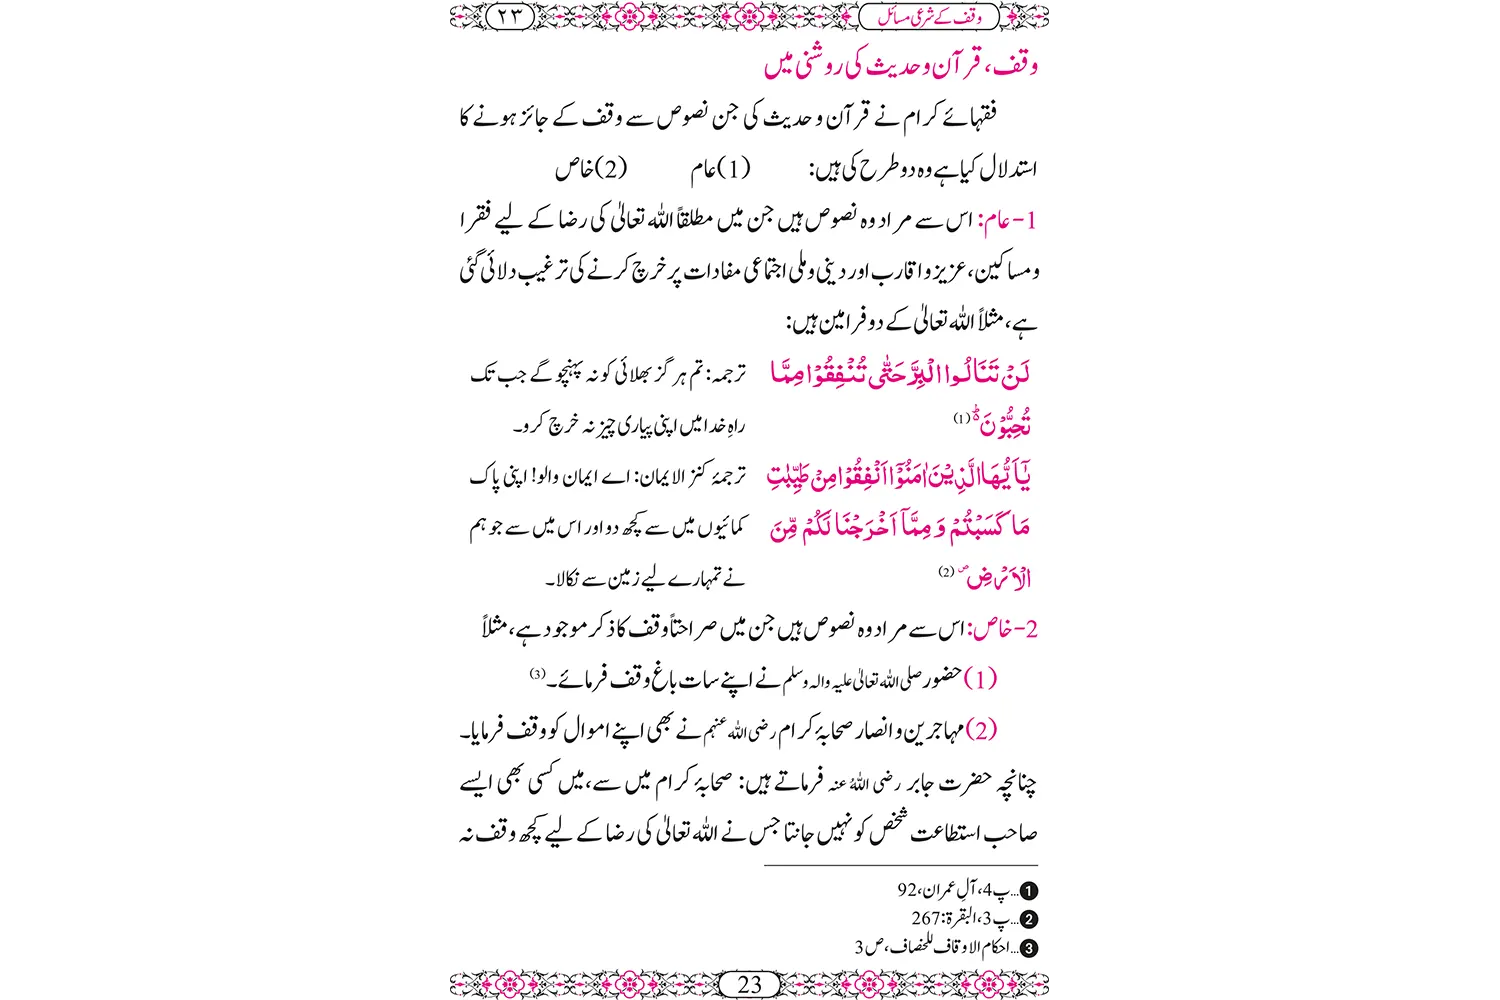 وقف کے شرعی مسائل ۲۳
وقف، قرآن وحدیث کی روشنی میں
فقہائے کرام نے قرآن و حدیث کی جن نصوص سے وقف کے جائز ہونے کا
استدلال کیا ہے وہ دو طرح کی ہیں: (1)عام (2)خاص
1-عام: اس سے مراد وہ نصوص ہیں جن میں مطلقاً اللہ تعالیٰ کی رضا کے لیے فقرا
ومساکین، عزیز و اقارب اور دینی و ملی اجتماعی مفادات پر خرچ کرنے کی ترغیب دلائی گئی
ہے، مثلاً اللہ تعالیٰ کے دو فرامین ہیں:
لَنْ تَنَالُوا الْبِرَّ حَتّٰى تُنْفِقُوْا مِمَّا ترجمہ: تم ہرگز بھلائی کو نہ پہنچو گے جب تک
تُحِبُّوْنَ ؕ (1) راہِ خدا میں اپنی پیاری چیز نہ خرچ کرو۔
یٰۤاَیُّهَا الَّذِیْنَ اٰمَنُوْۤا اَنْفِقُوْا مِنْ طَیِّبٰتِ ترجمۂ کنز الایمان: اے ایمان والو! اپنی پاک
مَا كَسَبْتُمْ وَ مِمَّاۤ اَخْرَجْنَا لَكُمْ مِّنَ کمائیوں میں سے کچھ دو اور اس میں سے جو ہم
الْاَرْضِ ۪ (2) نے تمہارے لیے زمین سے نکالا۔
2-خاص: اس سے مراد وہ نصوص ہیں جن میں صراحتاً وقف کا ذکر موجود ہے، مثلاً
(1) حضور صلی اللہ تعالیٰ علیہ والہ وسلم نے اپنے سات باغ وقف فرمائے۔ (3)
(2) مہاجرین و انصار صحابۂ کرام رضی اللہ عنہم نے بھی اپنے اموال کو وقف فرمایا۔
چنانچہ حضرت جابر رضی اللہُ عنہ فرماتے ہیں: صحابۂ کرام میں سے، میں کسی بھی ایسے
صاحب استطاعت شخص کو نہیں جانتا جس نے اللہ تعالیٰ کی رضا کے لیے کچھ وقف نہ
1...پ4، آلِ عمران، 92
2...پ3، البقرۃ: 267
3...احکام الاوقاف للخصاف، ص3
23